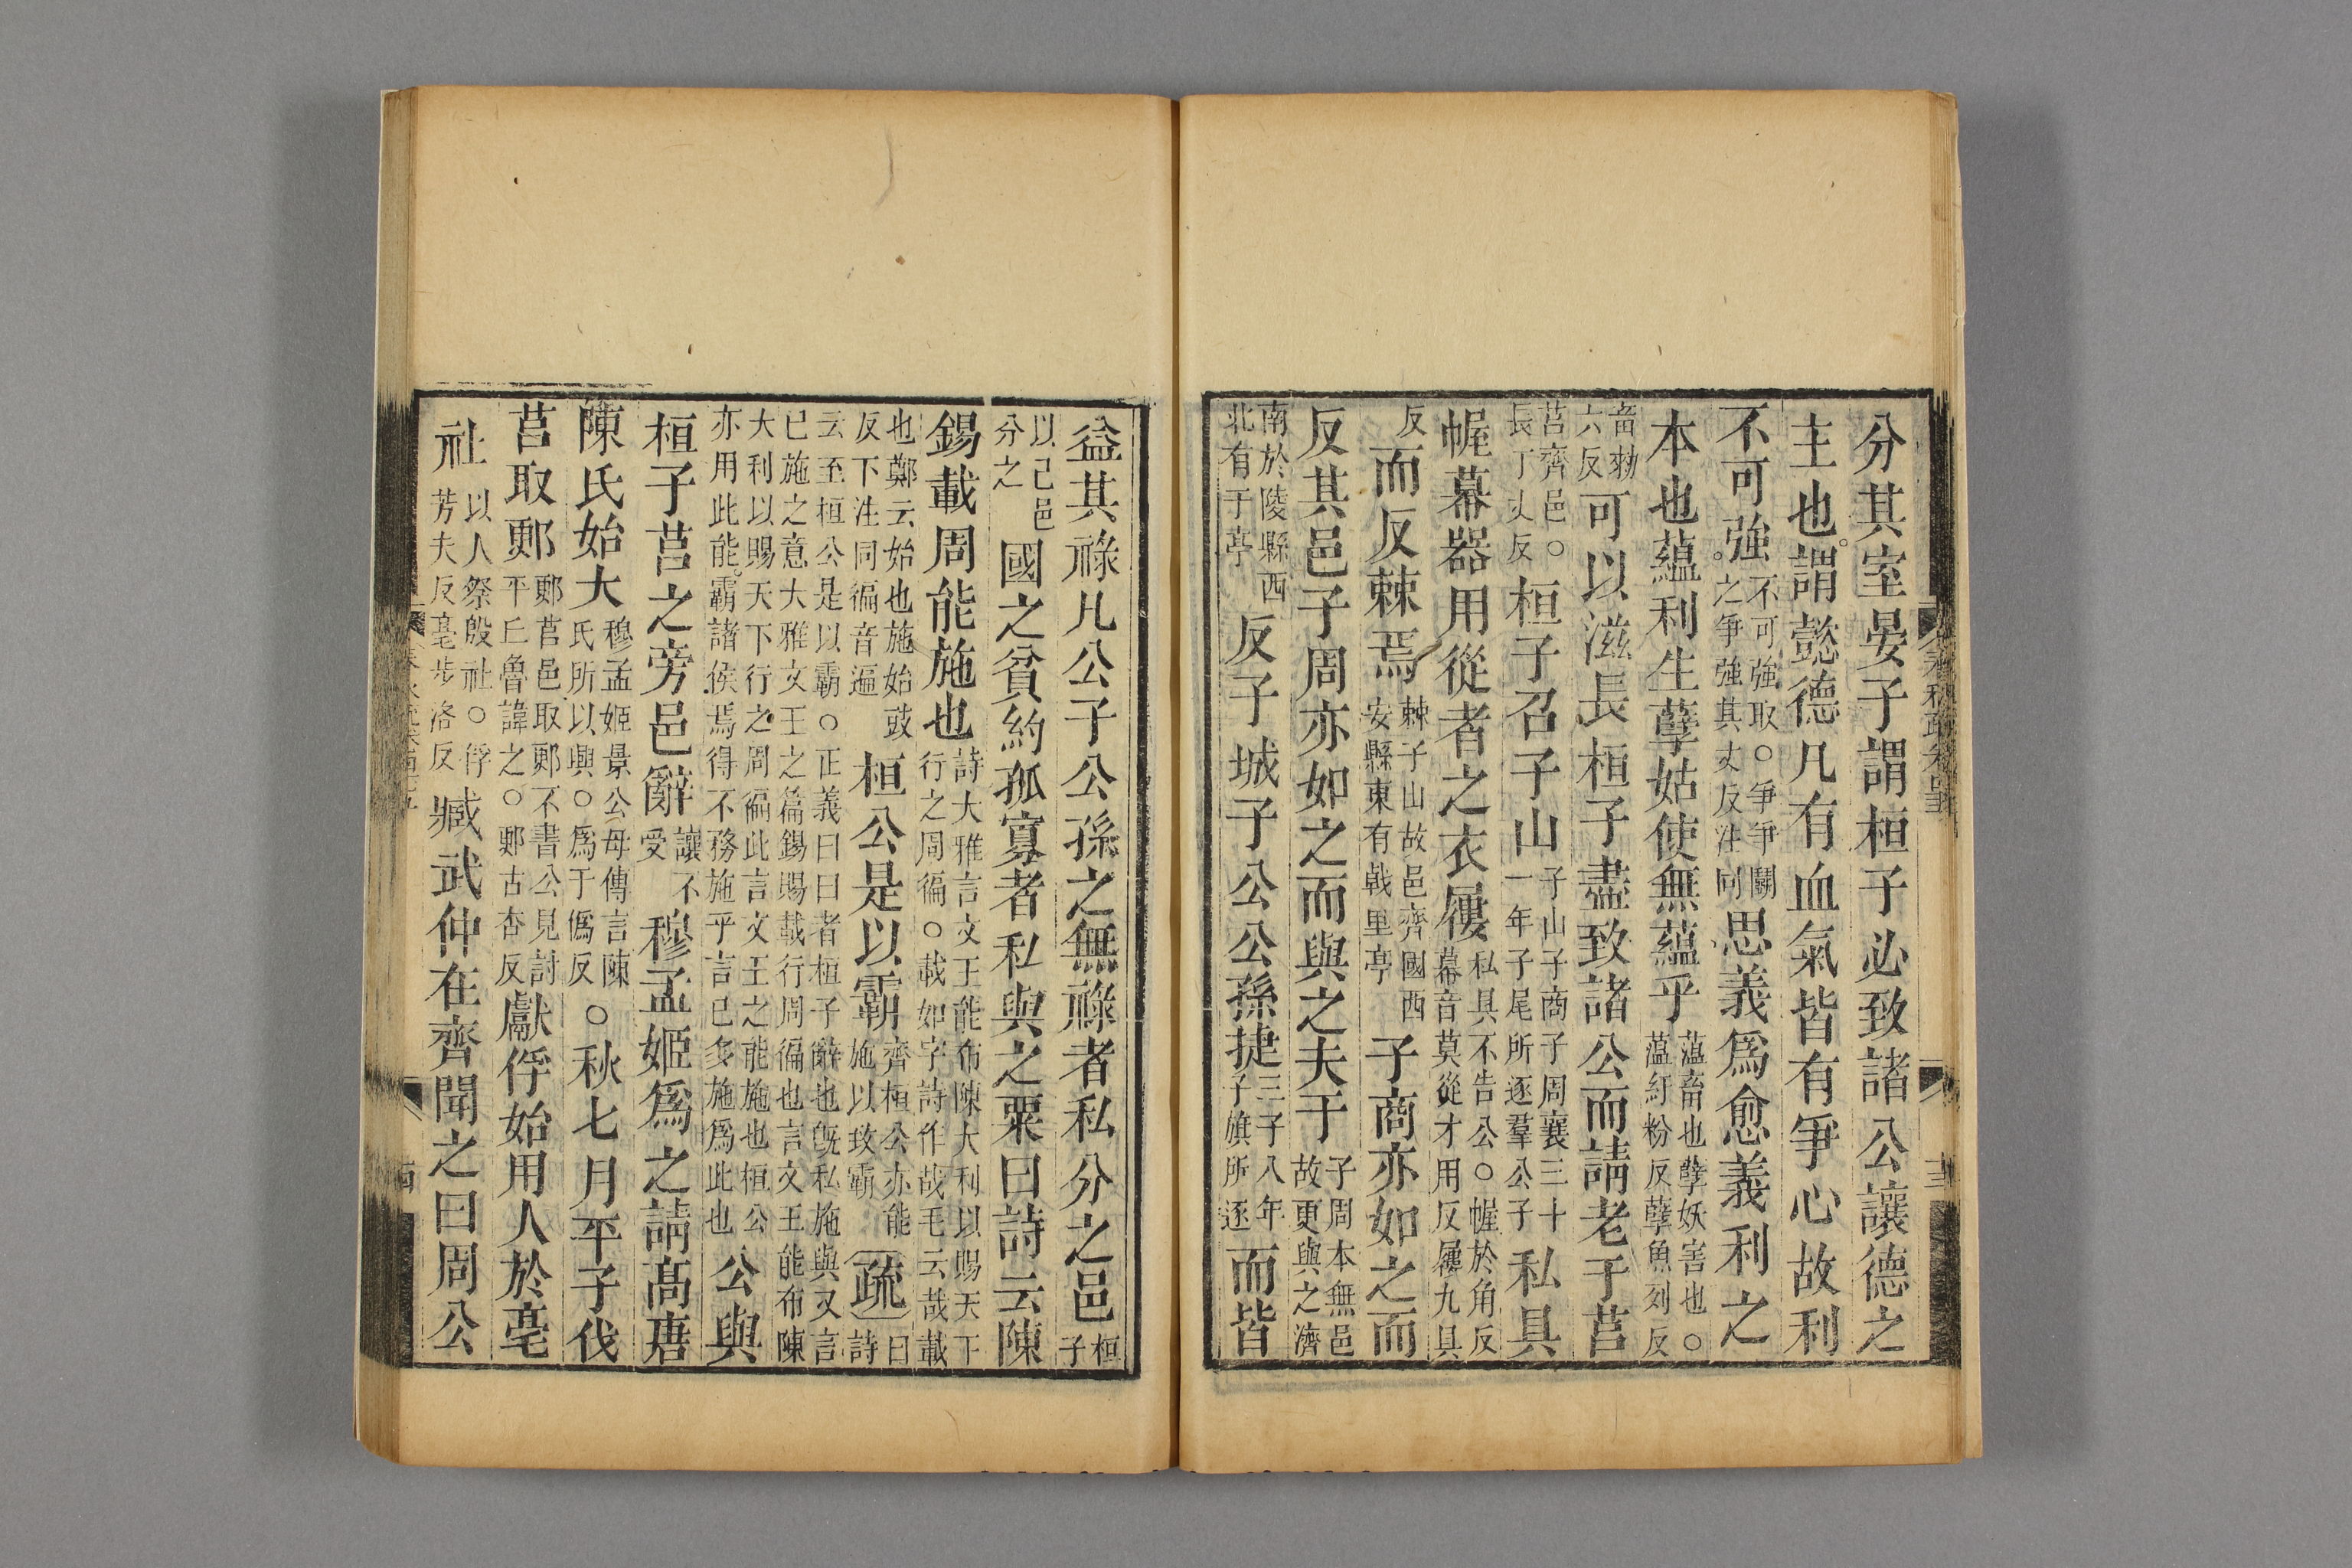 分其室晏子謂桓子必致諸公讓德之
主也謂懿德凡有血氣皆有爭心故利
不可強不可強取○爭爭鬬之爭強其丈反注同思義爲愈義利之
本也蘊利生孽姑使無蘊乎蘊畜也孽妖害也○蘊紆粉反孽魚列反
畜勑六反可以滋長桓子盡致諸公而請老于莒
莒齊邑○長丁丈反桓子召子山子山子商子周襄三十一年子尾所逐羣公子私具
幄幕器用從者之衣屨私具不告公○幄於角反幕音莫從才用反屨九具
反而反棘焉棘子山故邑齊國西安縣東有戟里亭子商亦如之而
反其邑子周亦如之而與之夫于子周本無邑故更與之濟
南於陵縣西北有于亭反子城子公公孫捷三子八年子旗所逐而皆
益其祿凡公子公孫之無祿者私分之邑桓子
以己邑分之國之貧約孤寡者私與之粟曰詩云陳
錫載周能施也詩大雅言文王能布陳大利以賜天下行之周徧○載如字詩作哉毛云哉載
也鄭云始也施始豉反下注同徧音遍桓公是以霸齊桓公亦能施以致霸疏曰詩
云至桓公是以霸○正義曰曰者桓子辭也既私施與又言已施之意大雅文王之篇錫賜載行周徧也言文王能布陳
大利以賜天下行之周徧此言文王之能施也桓公亦用此能霸諸侯焉得不務施乎言已多施爲此也公與
桓子莒之旁邑辭讓不受穆孟姬爲之請高唐
陳氏始大穆孟姬景公母傳言陳氏所以興○爲于僞反○秋七月平子伐
莒取郠郠莒邑取郠不書公見討平丘魯諱之○郠古杏反獻俘始用人於亳
社以人祭殷社○俘芳夫反亳步洛反臧武仲在齊聞之曰周公